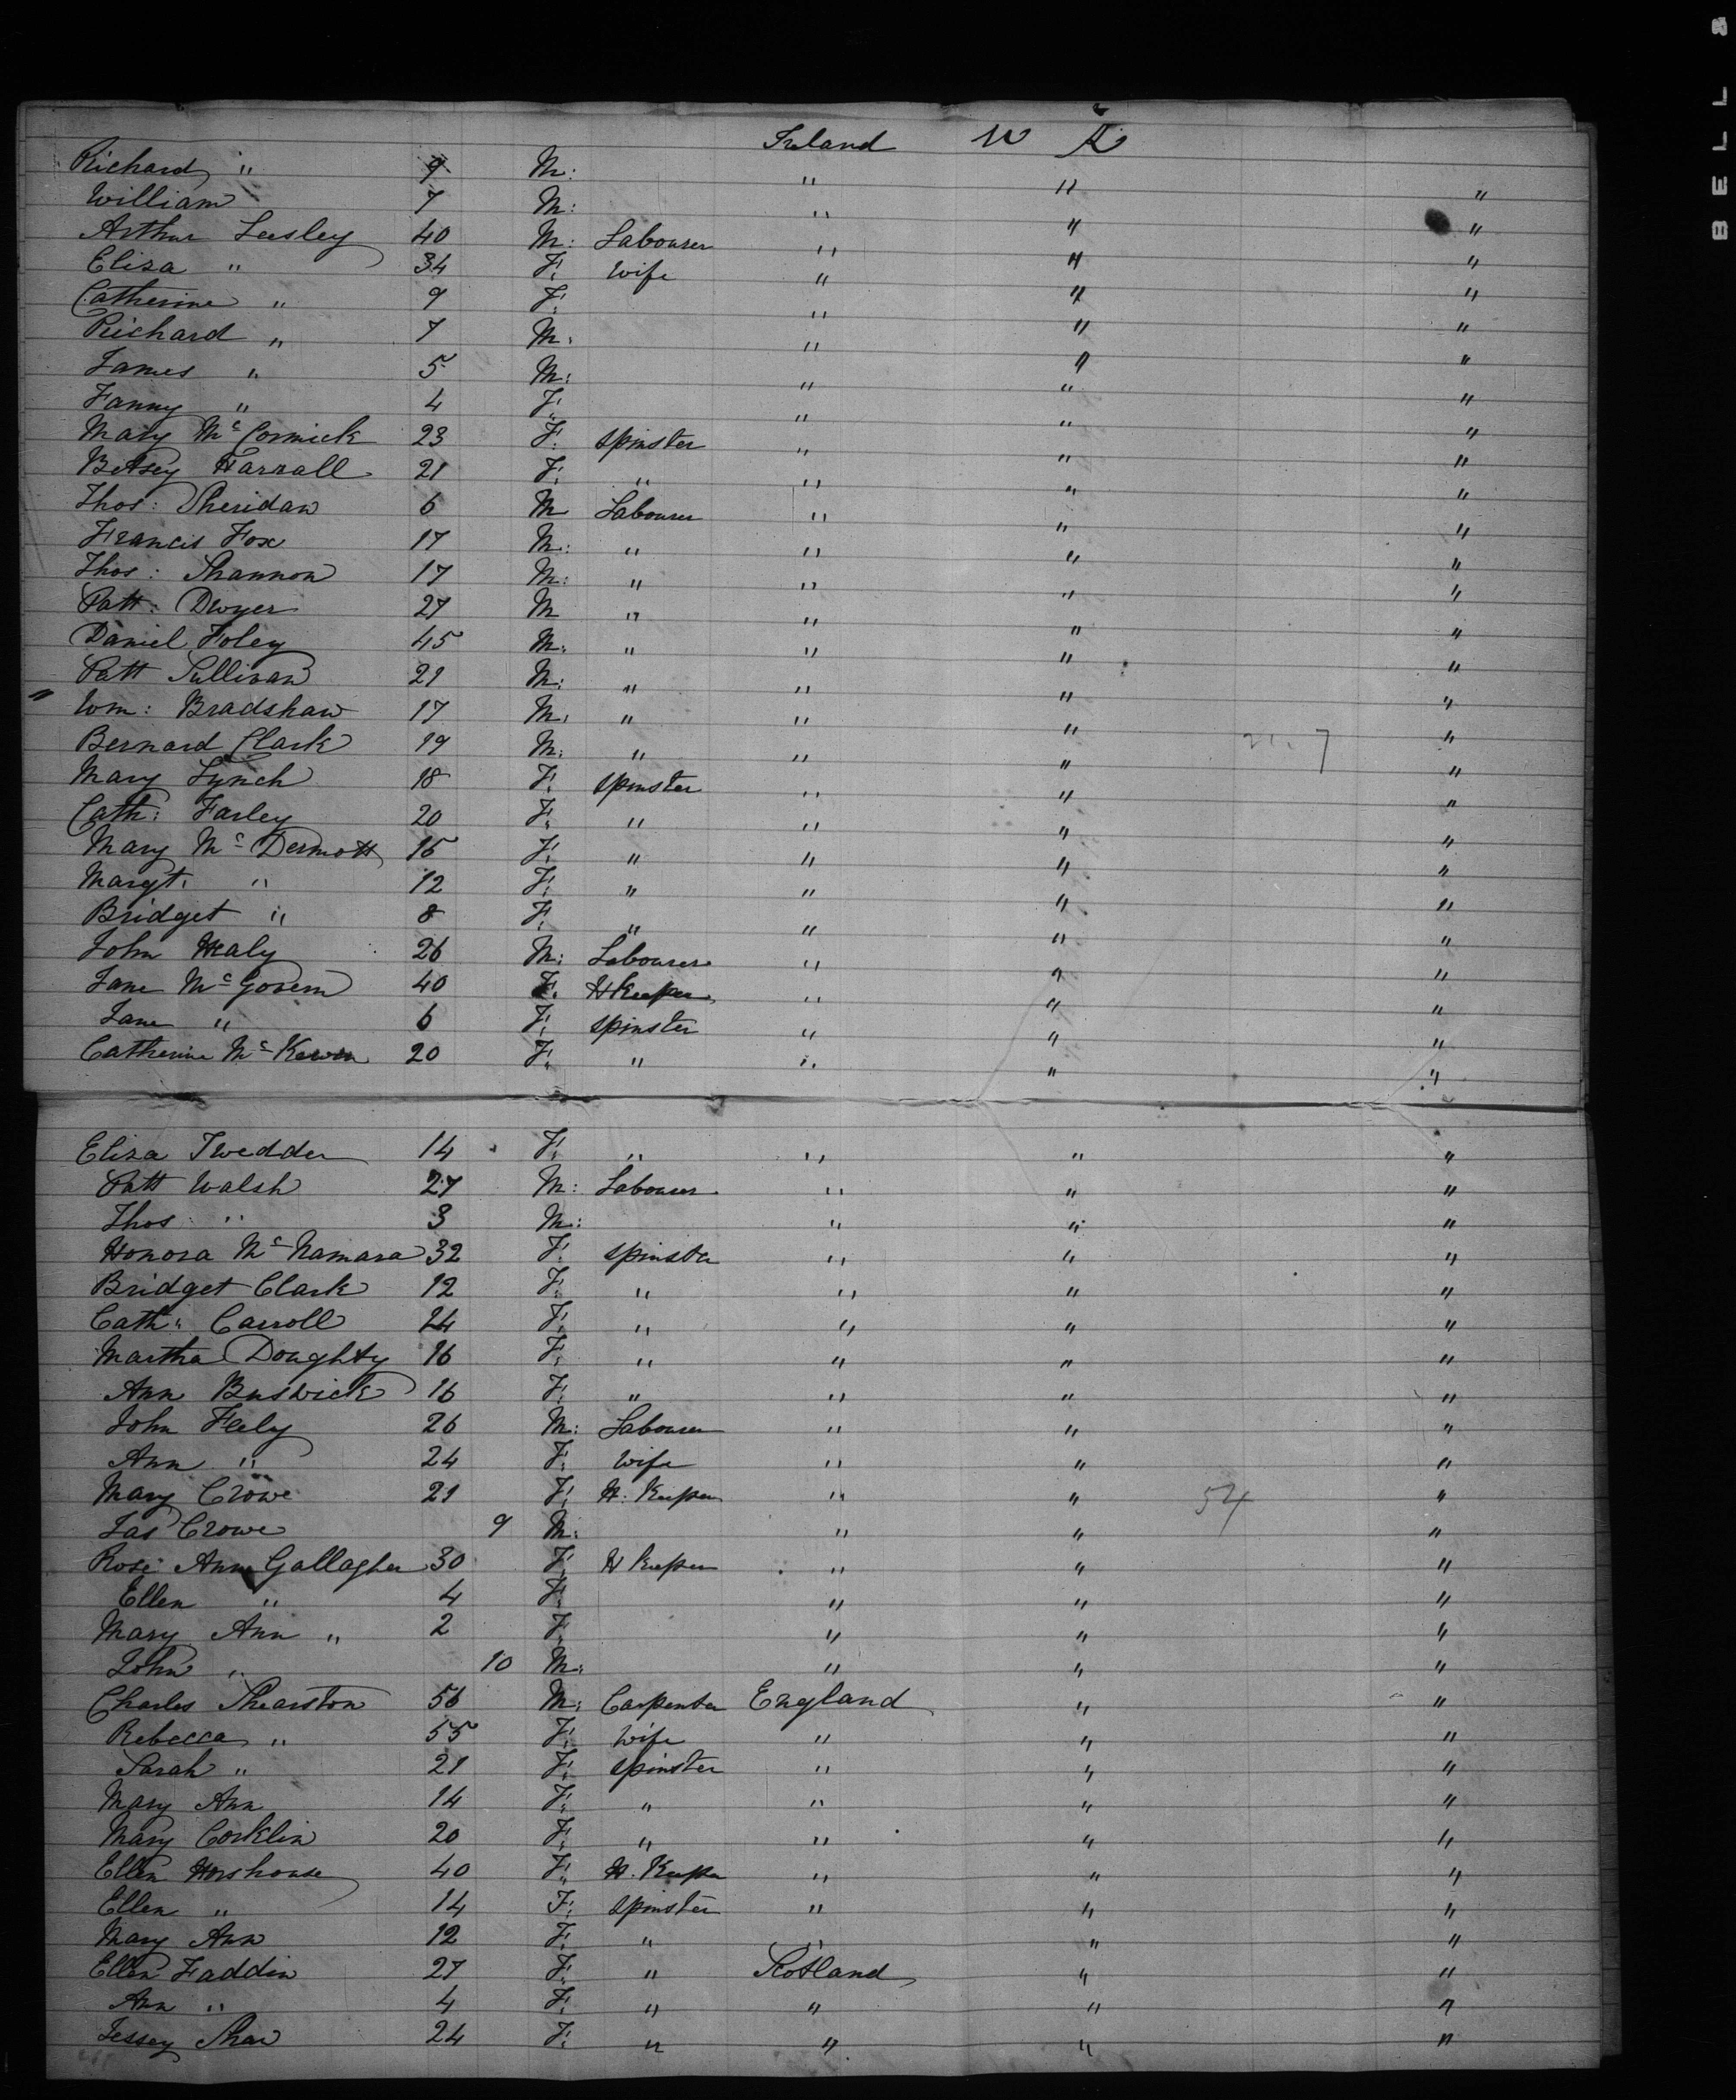 Ireland
Richard " 9 M: " " "
William 7 M: " " "
Arthur Leesley 40 M: Labourer " " "
Eliza " 34 F: Wife " " "
Catherine " 9 F: " " "
Richard " 7 M: " " "
James " 5 M: " " "
Fanny " 4 F: " " "
Mary McCormick 23 F: Spinster " " "
Betsey Harrall 21 F: " " " "
Thos: Sheridan 6 M Labourer " " "
Francis Fox 17 M: " " " "
Thos: Shannon 17 M: " " " "
Patt: Dwyer 27 M " " " "
Daniel Foley 45 M: " " " "
Patt Sullivan 21 M: " " " "
Wm: Bradshaw 17 M: " " " "
Bernard Clark 19 M: " " " "
Mary Lynch 18 F: Spinster " " "
Cath: Farley 20 F: " " " "
Mary McDermott 15 F: " " " "
Margt: " 12 F: " " " "
Bridget " 8 F: " " " "
John Healy 26 M: Labourer " " "
Jane McGovern 40 F: H Keeper " " "
Jane " 6 F: Spinster " " "
Catherine McKewin 20 F: " " " "
Eliza Twedder 14 F: " " " "
Patt Walsh 27 M: Labourer " " "
Thos " 3 M: " " "
Honora McNamara 32 F: Spinster " " "
Bridget Clark 12 F: " " " "
Cath: Carroll 24 F: " " " "
Martha Doughty 16 F: " " " "
Ann Buswick 16 F: " " " "
John Feely 26 M: Labourer " " "
Ann " 24 F: Wife " " "
Mary Crowe 21 F: H. Keeper " " 54 "
Jas Crowe 9 M: " " "
Rose Ann Gallagher 30 F: H Keeper " " "
Ellen " 4 F: " " "
Mary Ann " 2 F: " " "
John " 10 M: " " "
Charles Shearston 56 M: Carpenter England " "
Rebecca " 55 F: Wife " " "
Sarah " 21 F: Spinster " " "
Mary Ann 14 F: " " " "
Mary Corklin 20 F: " " " "
Ellen Horshouse 40 F: H. Keeper " " "
Ellen " 14 F: Spinster " " "
Mary Ann 12 F: " " " "
Ellen Faddin 27 F: " Scotland " "
Ann " 4 F: " " " "
Jessey Shaw 24 F: " " " "
BELL &